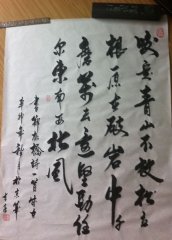 咬定青山不放松立
根原在破岩中千
磨万击还坚劲任
尔东南西北风
书郑板桥诗一首